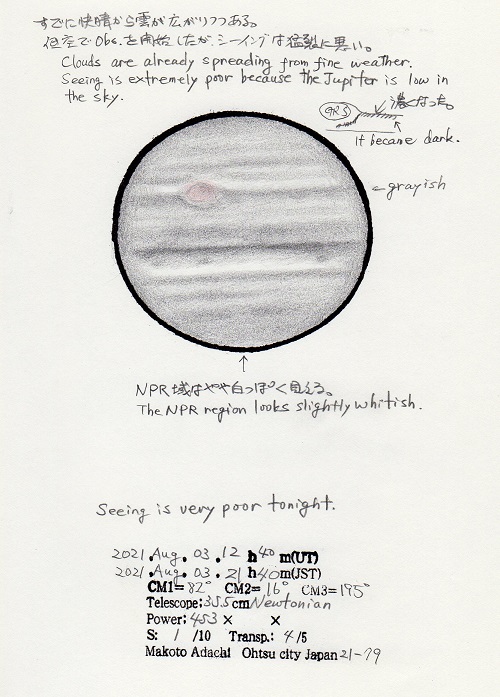 すでに快晴から雲が広がりつつある。
低空でObs.を開始したが、シーイングは猛烈に悪い。
Clouds are already spreading from fine weather.
Seeing is extremely poor because the Jupiter is low in
the sky.
GRS 濃くなった。
It became dark.
←grayish
↑
NPR域はやや白っぽく見える。
The NPR region looks slightly whitish.
Seeing is very poor tonight.
2021.Aug.03.12h40m(UT)
2021.Aug.03.21h40m(JST)
CM1=82° CM2=16° CM3=195°
Telescope:35.5cm Newtonian
Power:453× ×
S: 1 /10 Transp.: 4/5
Makoto Adachi Ohtsu city Japan 21-79